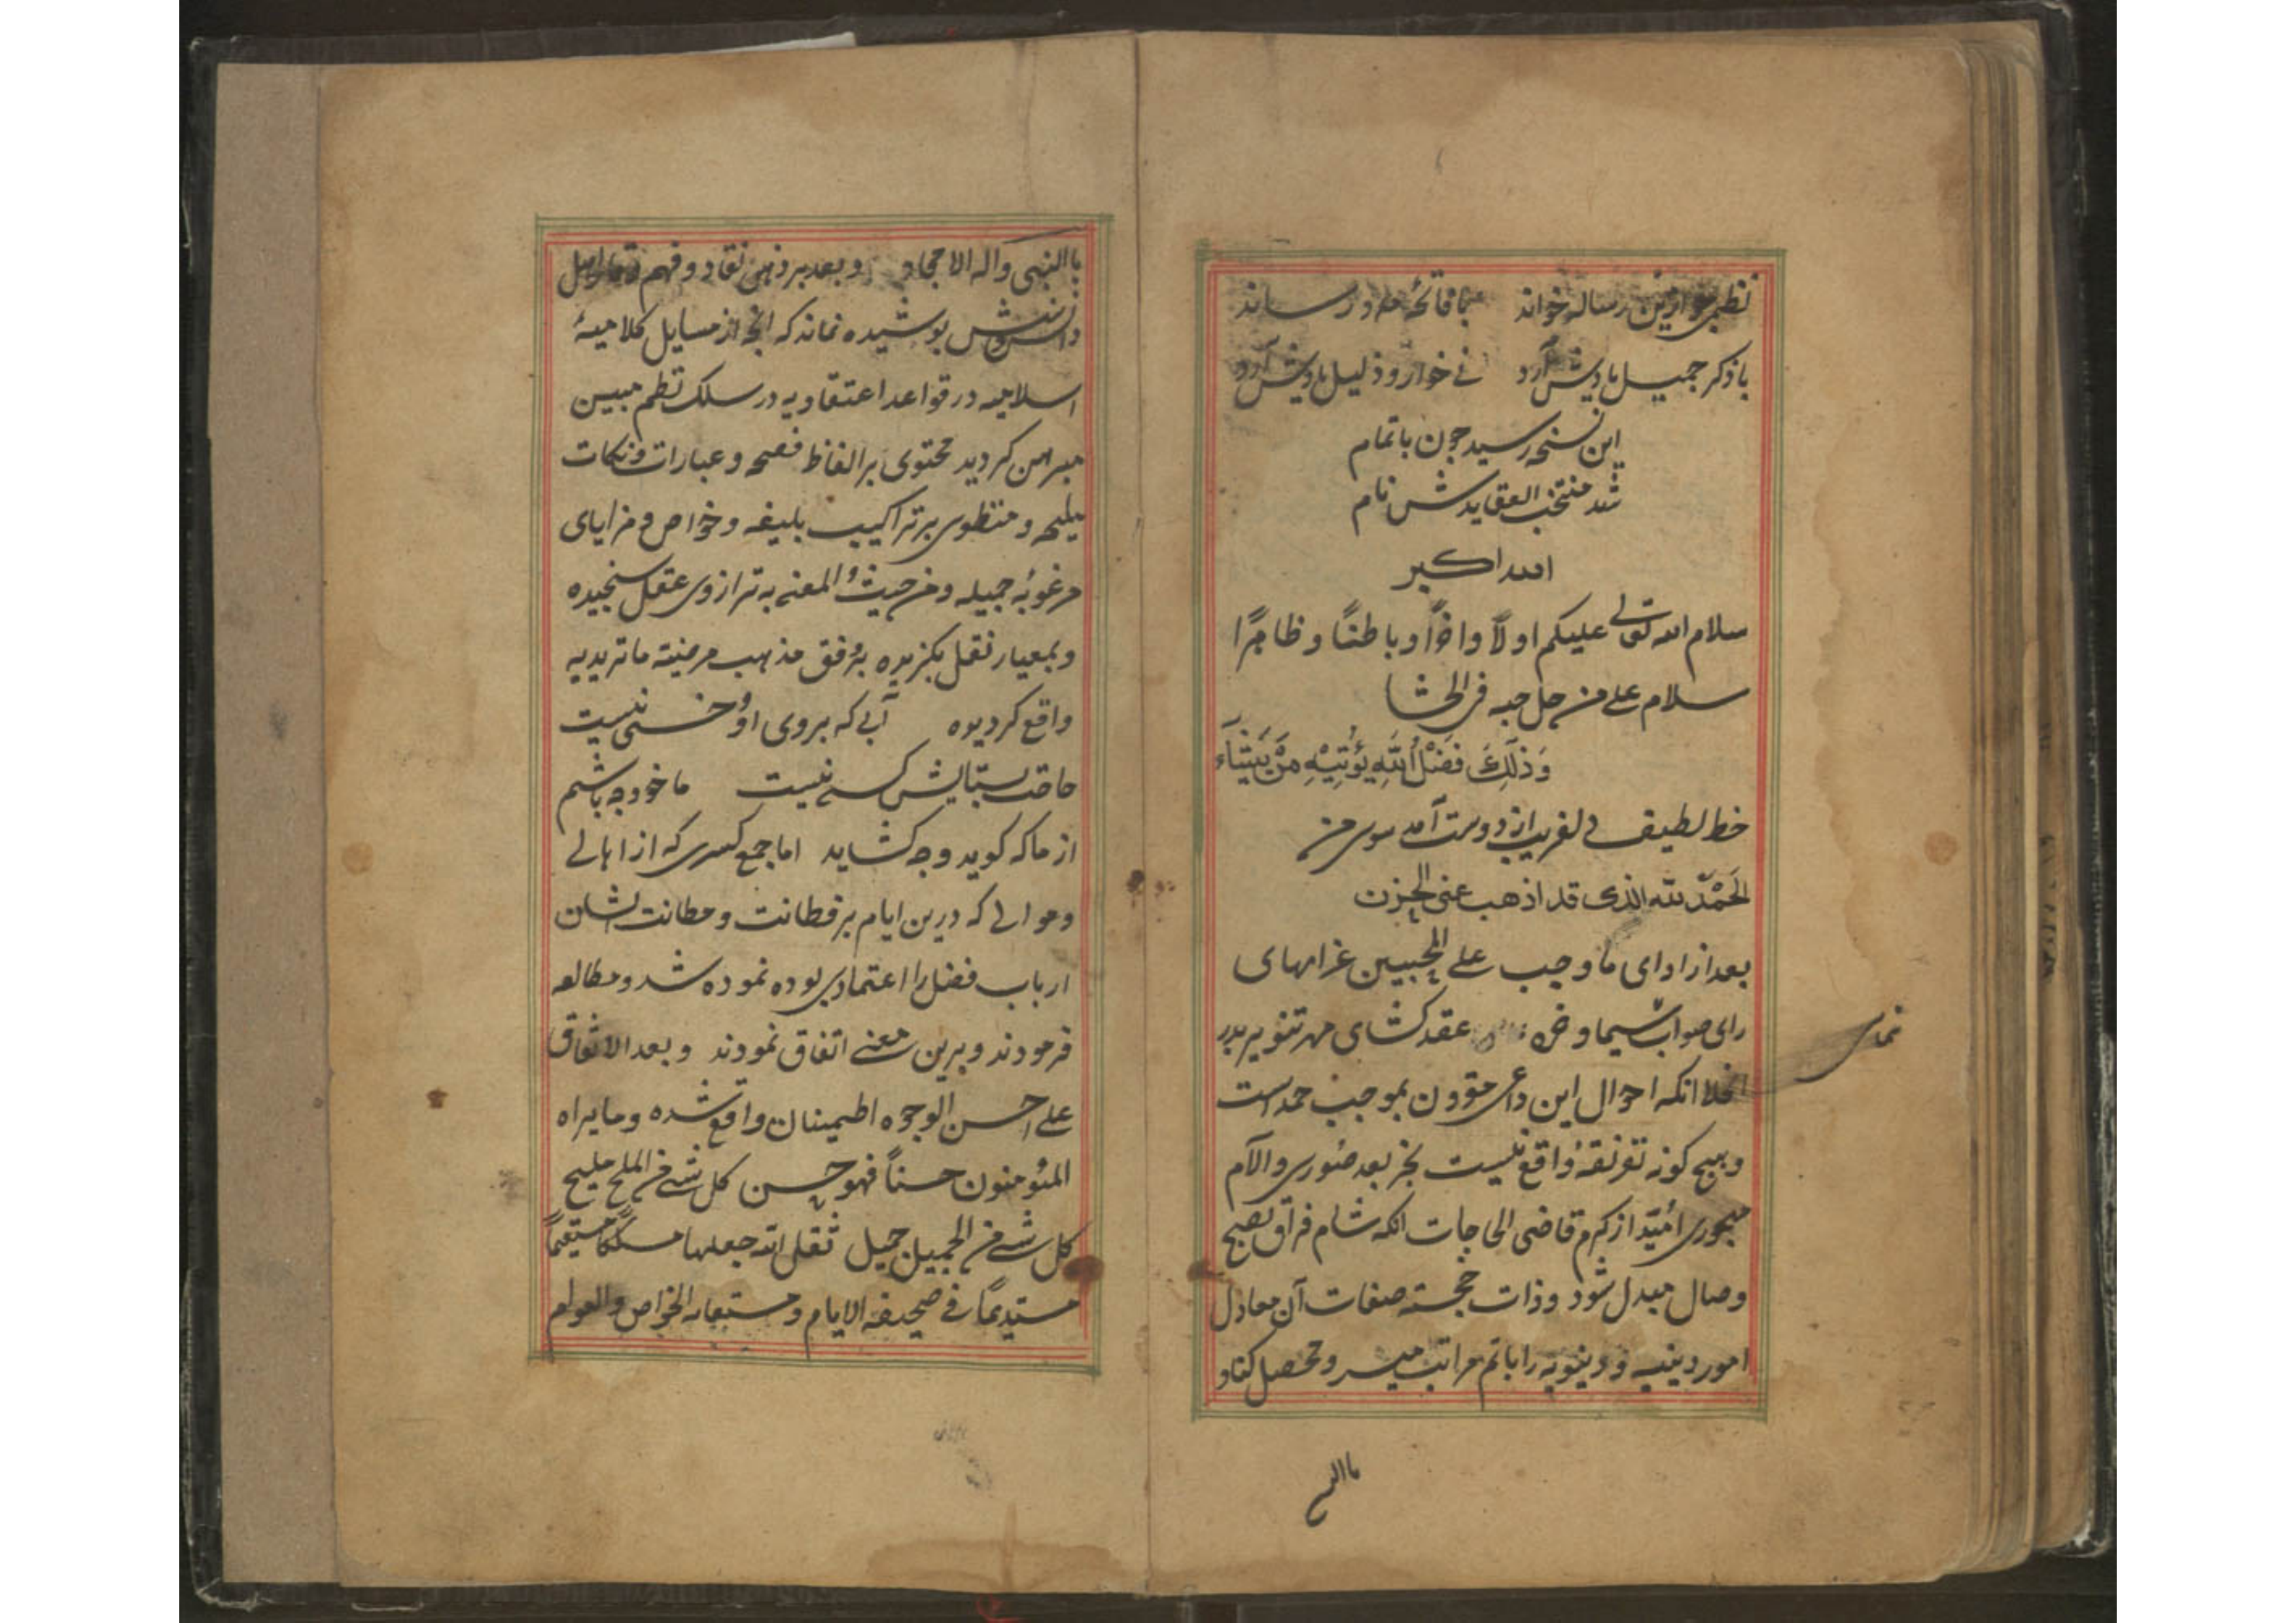 نظمی موازین رساله خواند با فاتحهٔ مدد رساند
با ذکر جمیل یادش آرد نی خوار و ذلیل یادش آرد
این نسخه رسید چون باتمام
شد منتخب العقایدش نام
الله اکبر
سلام الله تعالی علیکم اولاً واخراً و باطناً و ظاهراً
سلام علی من حل حبه فی الحشا
وَذٰلِكَ فَضْلُ اللّٰهِ يُؤْتِيْهِ مَنْ يَشَآء
خط لطیف دلفریب از دوست آمد سوی من
اَلحَمْدُ لله الذی قد اذهب عنی الحزن
بعد از ادای ما وجب علی المحبین غرامهای
رای صواب سیما و عقد کشای مهر تنویر بدر
نمای
انجلا انکه احوال این داعی مقرون بموجب حمد است
و هیچ کونه تفرقهٔ واقع نیست بجز بعد ضوری و الآم
مهجوری امید از کرم قاضی الحاجات انکه شام فراق بصبح
وصال مبدل شود و ذات خجسته صفات آن معادل
امور دینیه و دینویه را باتم مراتب میسر و محصل کناد
باالنبی
باالنبی واله الامجاد و بعد بر ذهن نقاد و فهم
دانش پوشیده نماند که انچه از مسایل کلامیهٔ
اسلامیه در قواعد اعتقادیه در سلک نظم مبین
مبرهن کردید محتوی بر الفاظ فصیحه و عبارات و نکات
ملیحه و منطوی بر تراکیب بلیغه و خواص و مزایای
مرغوبهٔ جمیله و من حیث المعنی به ترازوی عقل سنجیده
و بمعیار نقل بکزیده بر وفق مذهب مرضیه ماتریدیه
واقع کردیده آبی که بروی او خسی نیست
حاجت بستایش کسی نیست ما خود چه باشیم
از ما که کوید و چه کشاید اما جمع کسری که از اهالی
و موالی که درین ایام بر فطانت و متانت ایشان
ارباب فضل را اعتمادی بوده نموده شد و مطالعه
فرمودند و برین معنی اتفاق نمودند و بعد الاتفاق
علی احسن الوجوه اطمینان واقع شده و ما یراه
المؤمنون حسناً فهو حسن کل شی من الملیح ملیح
کل شی من الجمیل جمیل تقبل الله جعلها مسلکاً مستقیماً
مستدیماً فی صحیفه الایام و مستفاد الخواص والعوام